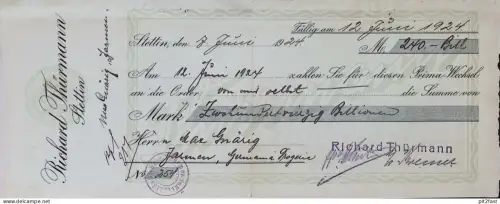 Fällig am 12 Juni 1924
Stettin, den 8 Juni 1924 M. 240.- Bill
Am 12. Juni 1924 zahlen Sie für diesen Prima-Wechsel
an die Order von uns selbst die Summe von
Mark Billionen
Herrn Max Gnärig
Jarmen, Germania Drogerie
No. 251
Richard Thürmann
Richard Thürmann
Stettin
Max Gnärig, Jarmen.